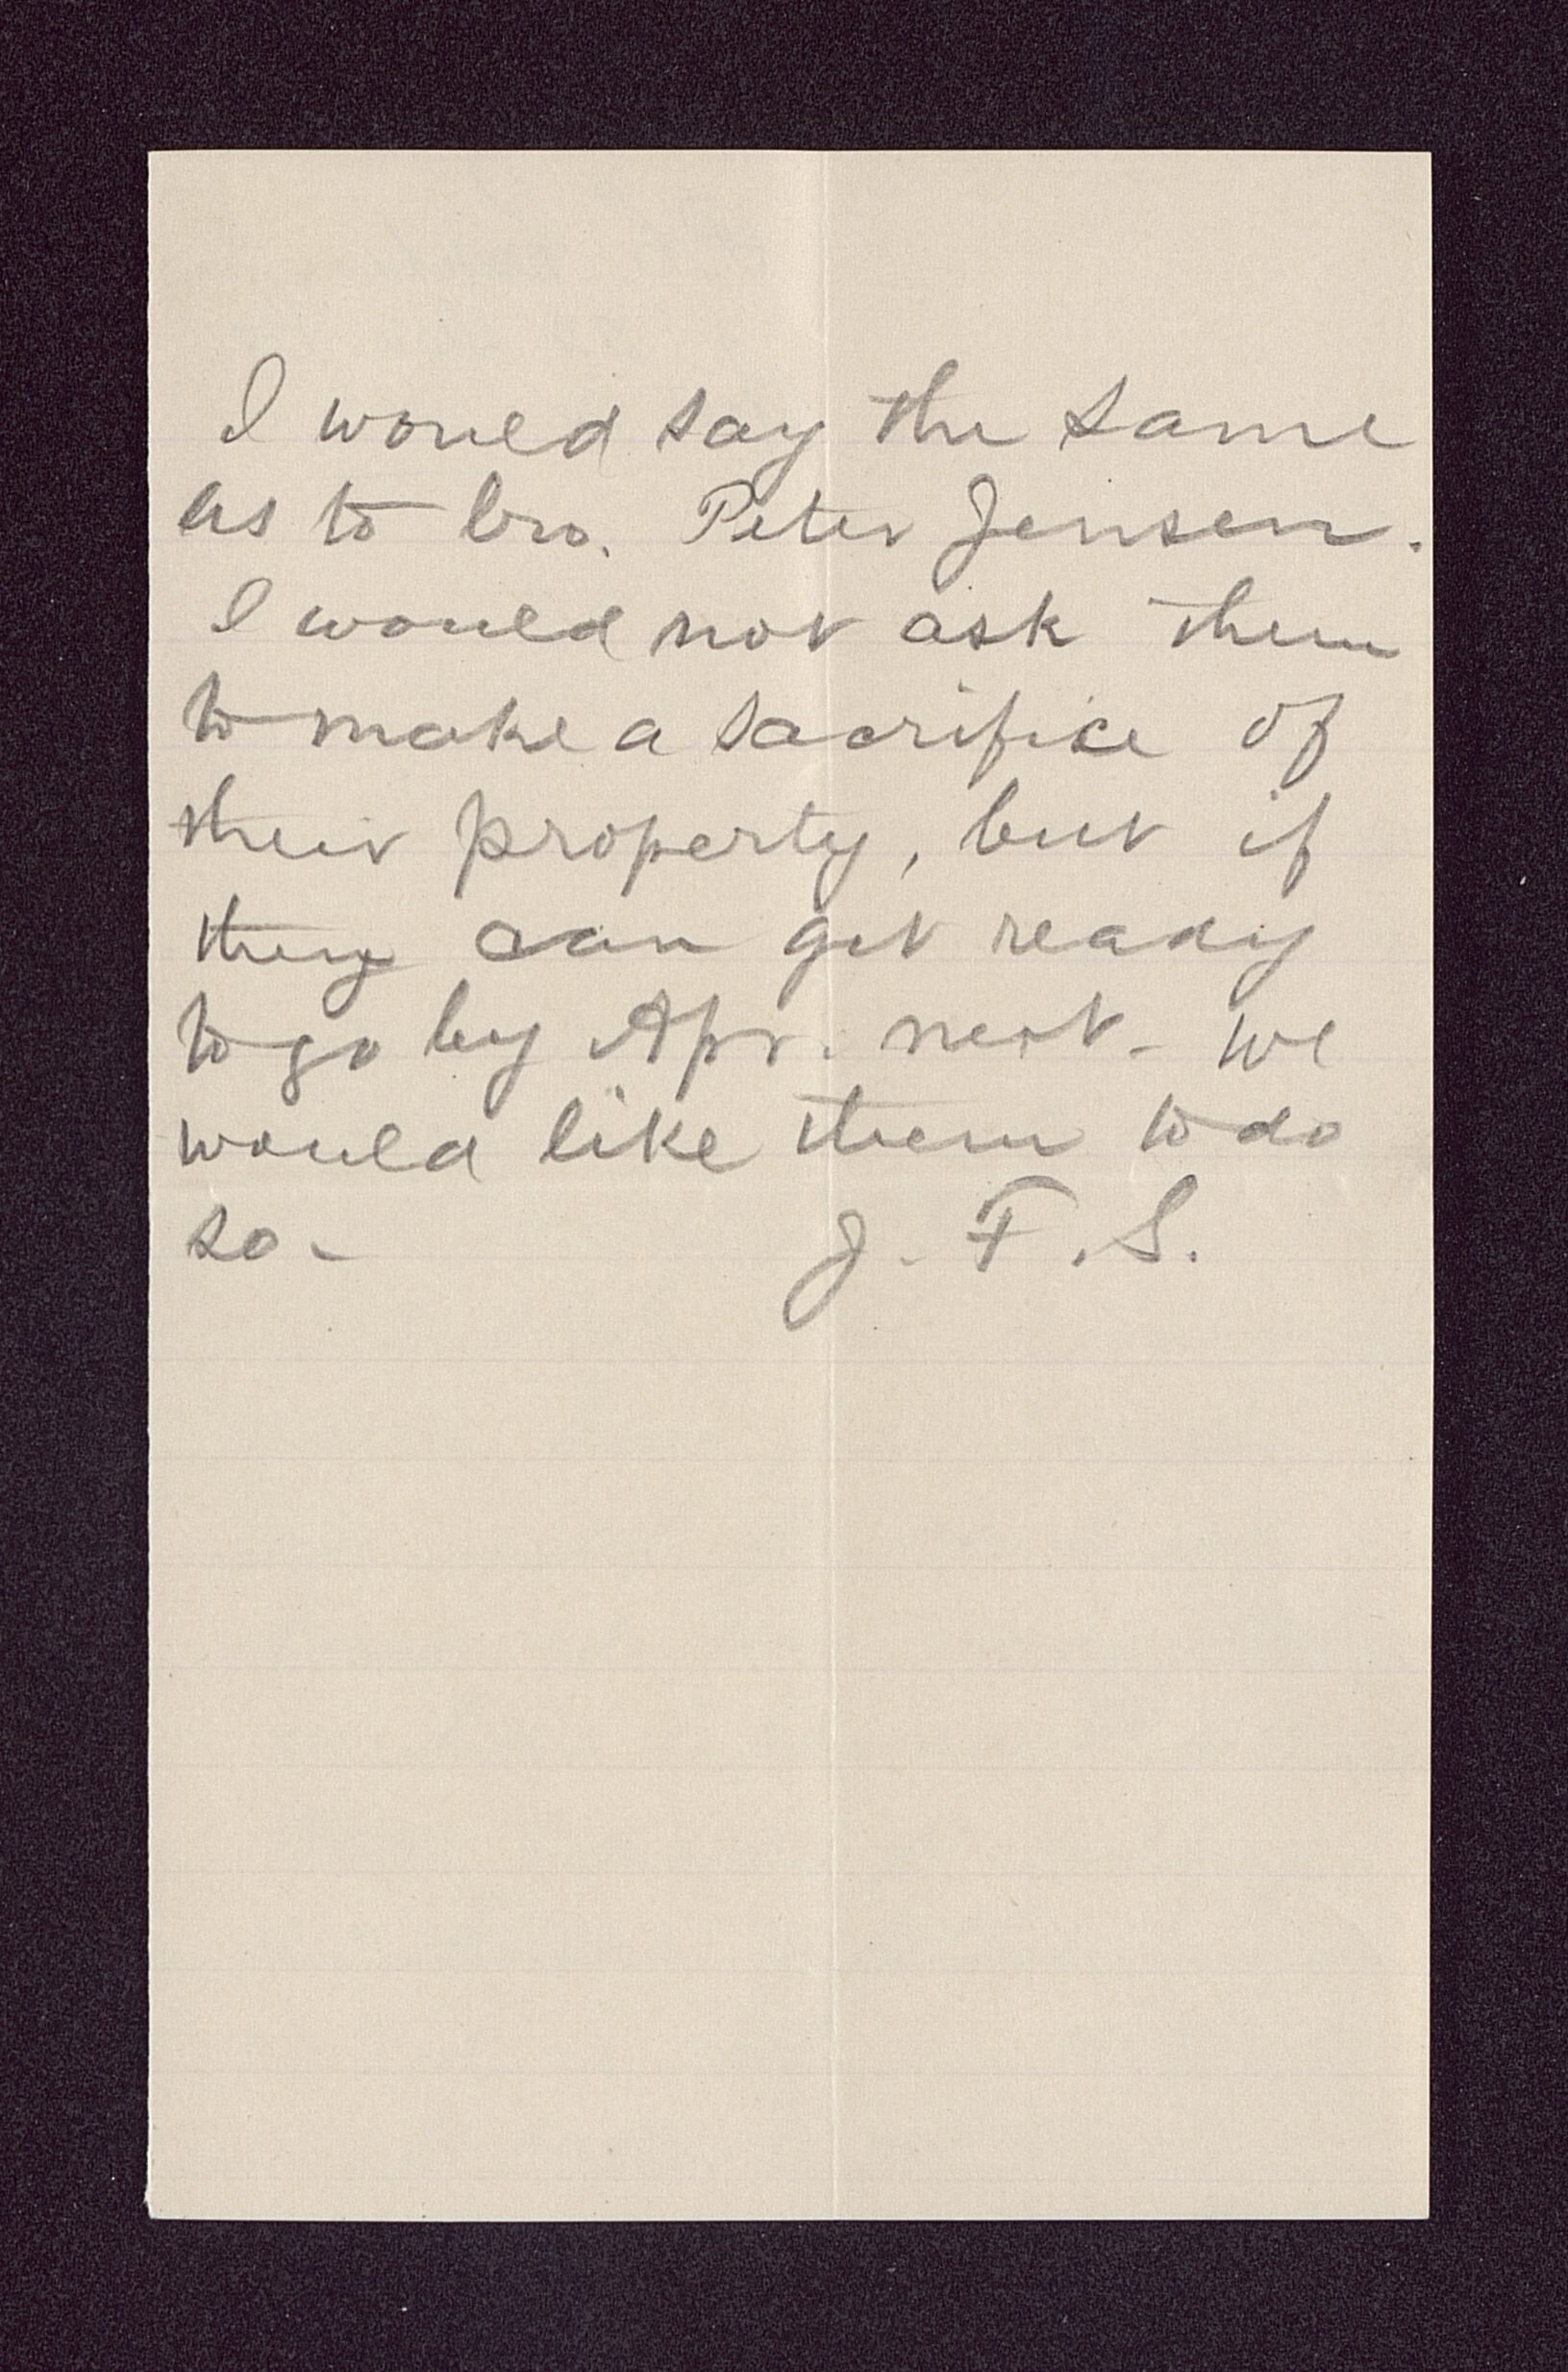 I would say the same
as to bro. Peter Jensen.
I would not ask them
to make a sacrifice of
their property, but if
they can get ready
to go by Apr. next - we
would like them to do
so - J. F. S.